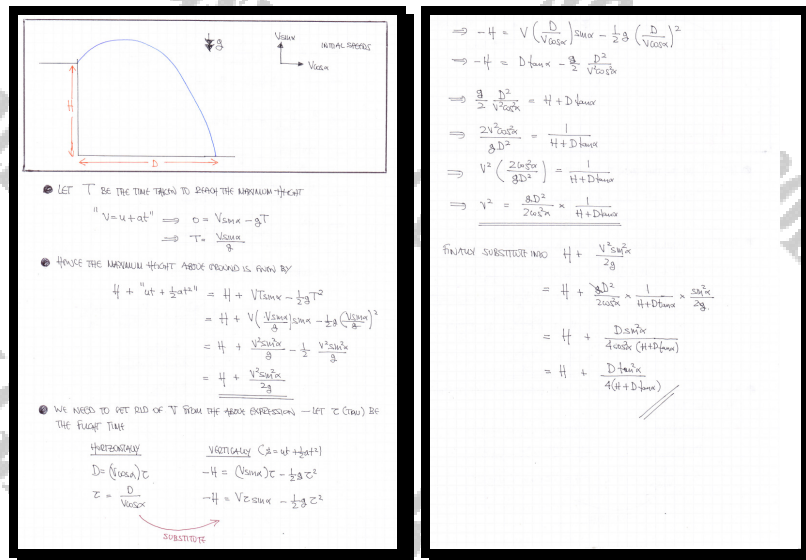 g
Vsinα
Vcosα
INITIAL SPEEDS
H
D
LET T BE THE TIME TAKEN TO REACH THE MAXIMUM HEIGHT
"V=u+at" ⟹ 0 = Vsinα - gT
⟹ T = Vsinα/g
HENCE THE MAXIMUM HEIGHT ABOVE GROUND IS GIVEN BY
H + "ut + ½at²" = H + VTsinα - ½gT²
= H + V(Vsinα/g)sinα - ½g(Vsinα/g)²
= H + V²sin²α/g - ½ V²sin²α/g
= H + V²sin²α/2g
WE NEED TO GET RID OF V FROM THE ABOVE EXPRESSION - LET τ (TAU) BE
THE FLIGHT TIME
HORIZONTALLY
D = (Vcosα)τ
τ = D/Vcosα
VERTICALLY (s = ut + ½at²)
-H = (Vsinα)τ - ½gτ²
-H = Vτsinα - ½gτ²
SUBSTITUTE
⟹ -H = V(D/Vcosα)sinα - ½g(D/Vcosα)²
⟹ -H = Dtanα - g/2 D²/V²cos²α
⟹ g/2 D²/V²cos²α = H + Dtanα
⟹ 2V²cos²α/gD² = 1/H+Dtanα
⟹ V²(2cos²α/gD²) = 1/H+Dtanα
⟹ V² = gD²/2cos²α × 1/H+Dtanα
FINALLY SUBSTITUTE INTO H + V²sin²α/2g
= H + gD²/2cos²α × 1/H+Dtanα × sin²α/2g
= H + D.sin²α/4cos²α(H+Dtanα)
= H + Dtan²α/4(H+Dtanα)